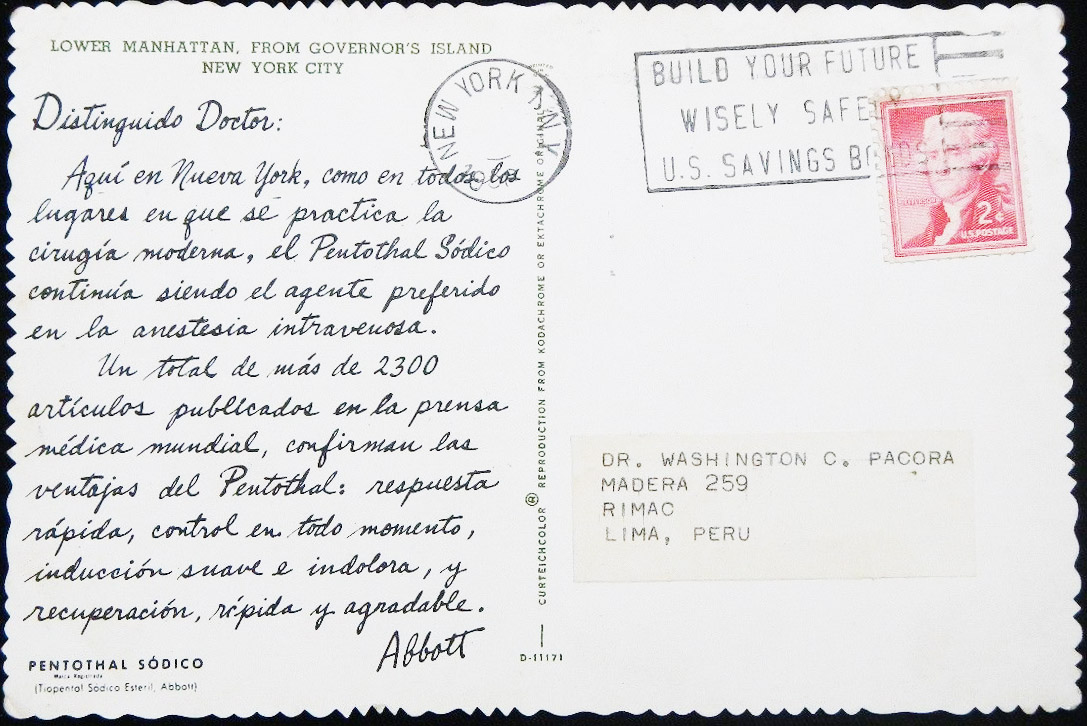 LOWER MANHATTAN, FROM GOVERNOR'S ISLAND
NEW YORK CITY
Distinguido Doctor:
Aquí en Nueva York, como en todos los
lugares en que se practica la
cirugía moderna, el Pentothal Sódico
continúa siendo el agente preferido
en la anestesia intravenosa.
Un total de más de 2300
artículos publicados en la prensa
médica mundial, confirman las
ventajas del Pentothal: respuesta
rápida, control en todo momento,
inducción suave e indolora, y
recuperación, rápida y agradable.
Abbott
PENTOTHAL SÓDICO
Marca Registrada
(Tiopental Sódico Estéril, Abbott)
CURTEICHCOLOR ® REPRODUCTION FROM KODACHROME OR EKTACHROME ORIGINAL
D-11171
NEW YORK N.Y.
BUILD YOUR FUTURE
WISELY SAFELY
U.S. SAVINGS BONDS
JEFFERSON
2¢
U.S. POSTAGE
DR. WASHINGTON C. PACORA
MADERA 259
RIMAC
LIMA, PERU